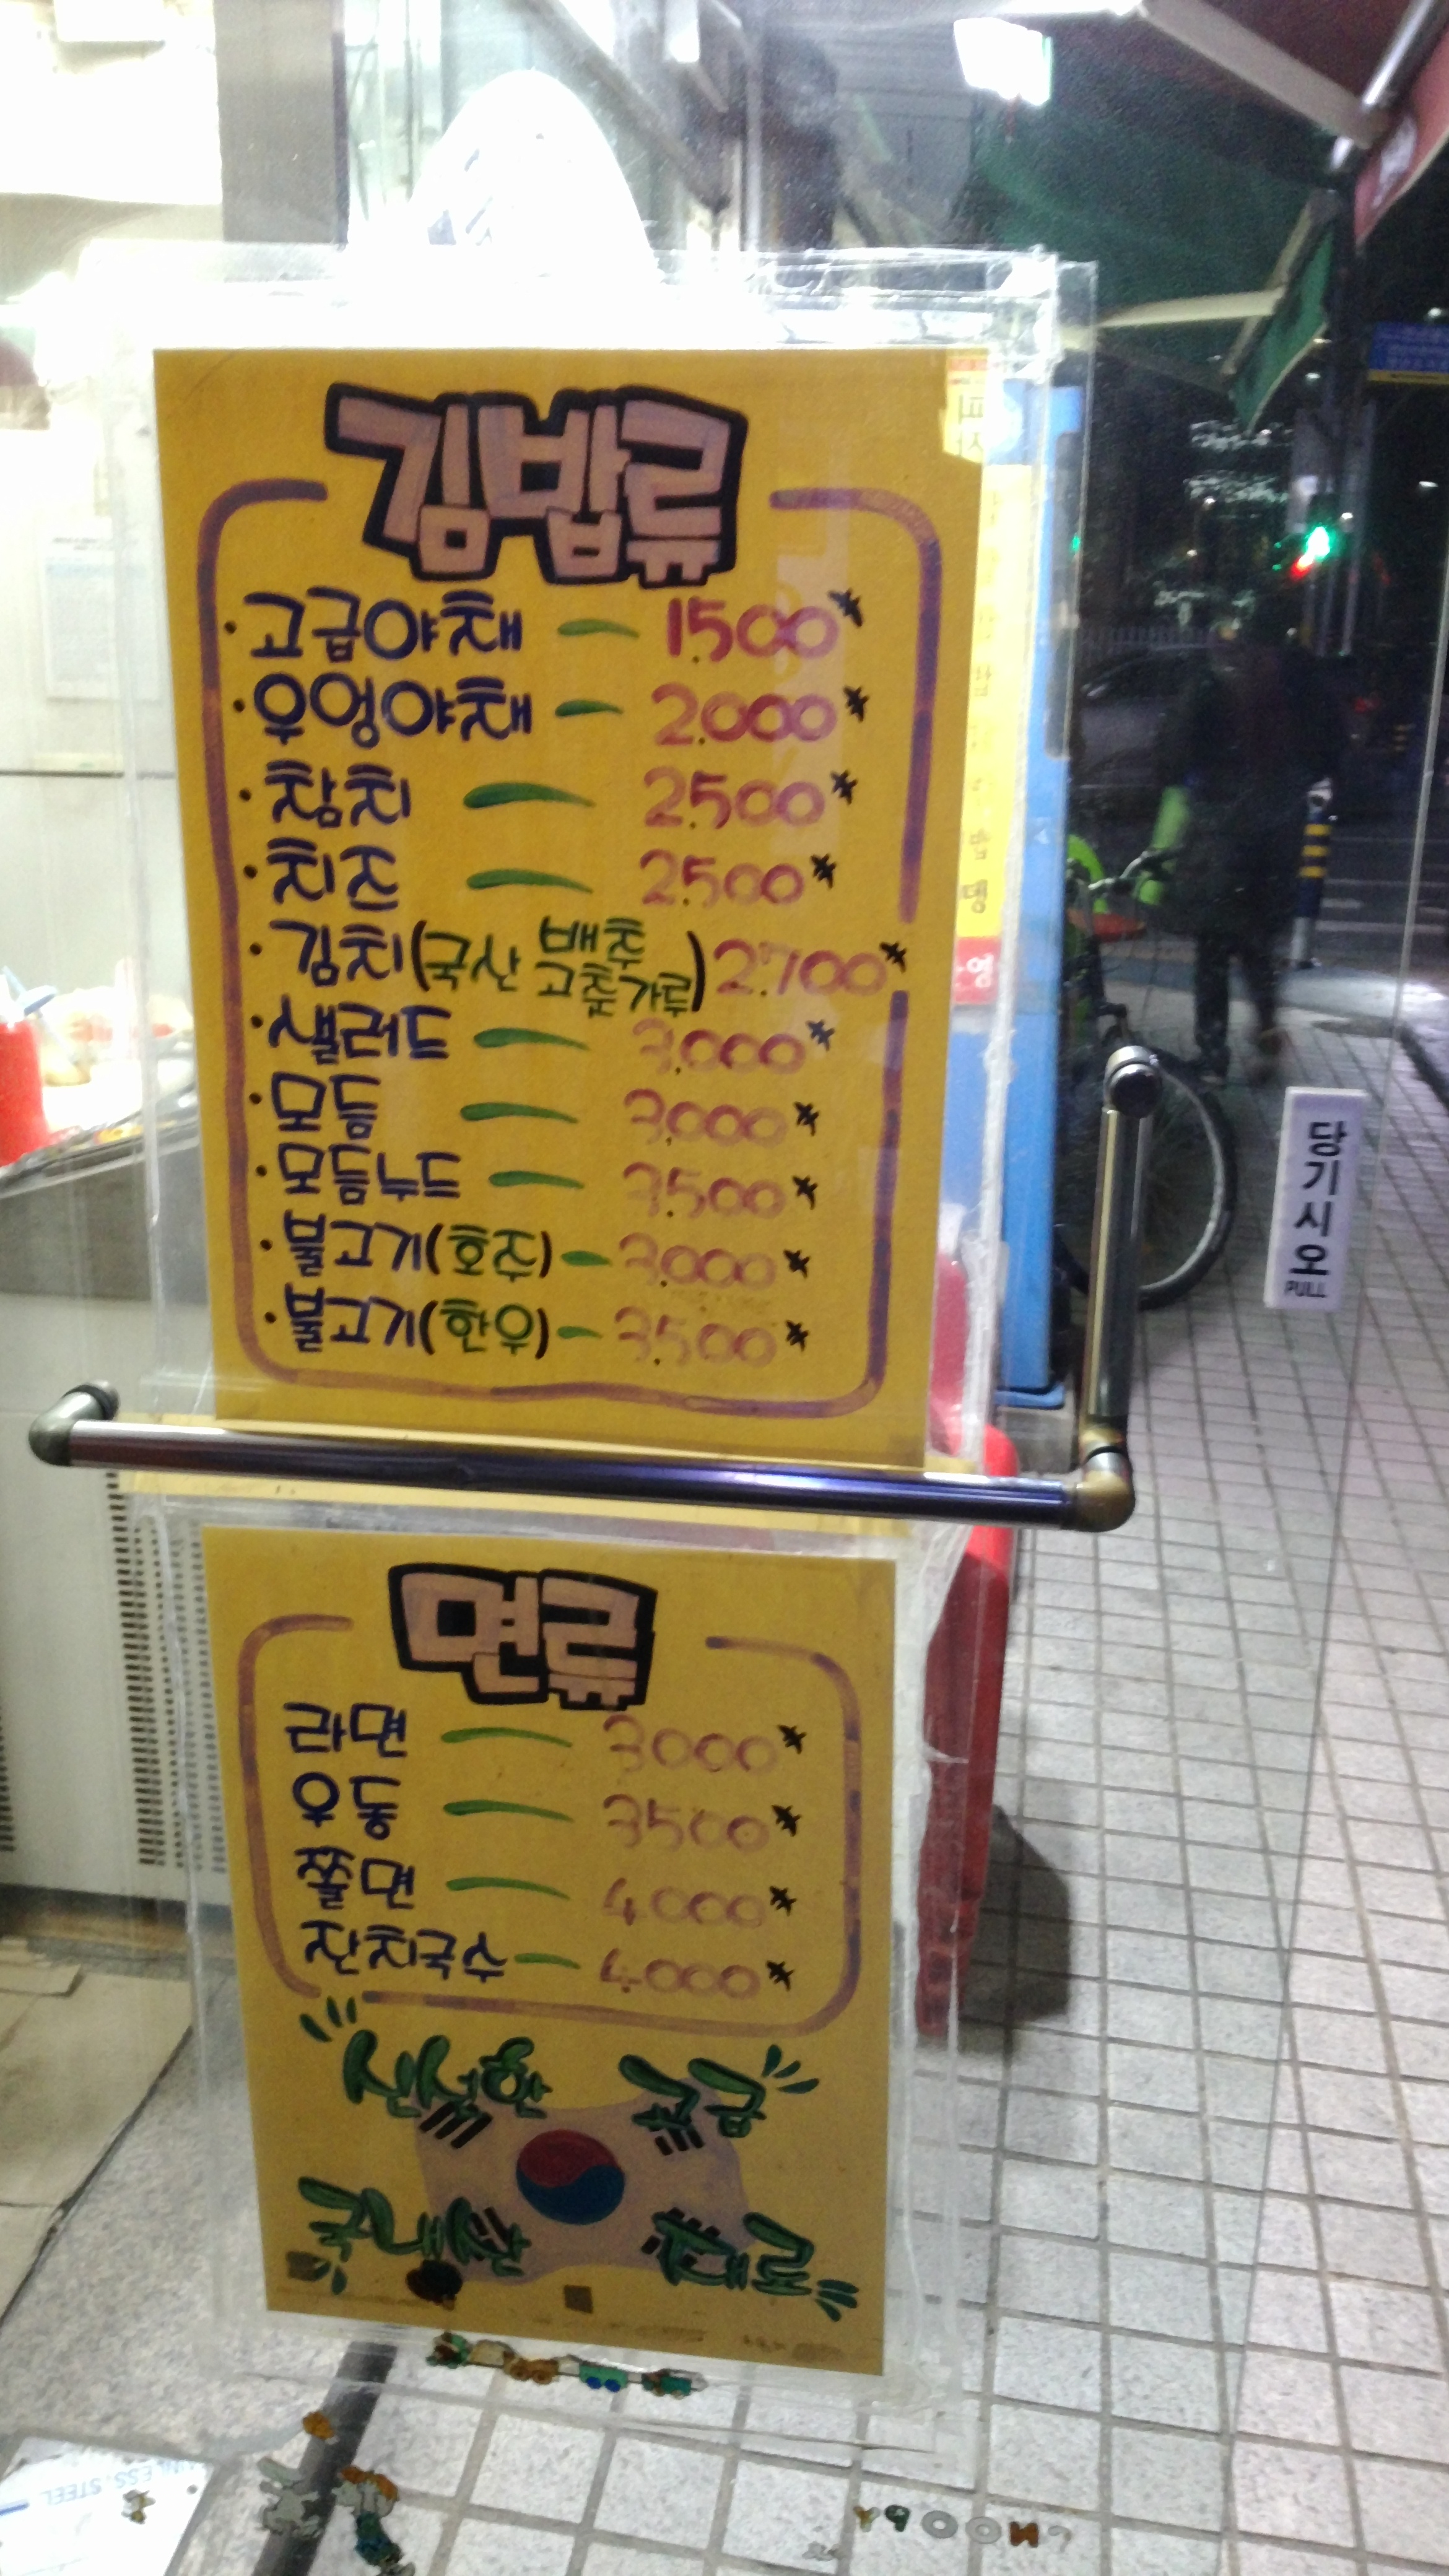 김밥류
· 고급야채 — 1.500
· 우엉야채 — 2.000
· 참치 — 2.500
· 치즈 — 2.500
· 김치(국산 배추 고춧가루) 2.700
· 샐러드 — 3.000
· 모듬 — 3.000
· 모듬누드 — 3.500
· 불고기(호주) — 3.000
· 불고기(한우) — 3.500
당기시오
PULL
면류
라면 — 3000
우동 — 3500
쫄면 — 4.000
잔치국수 — 4.000
신선한 고급
국내산 재료
STEEL